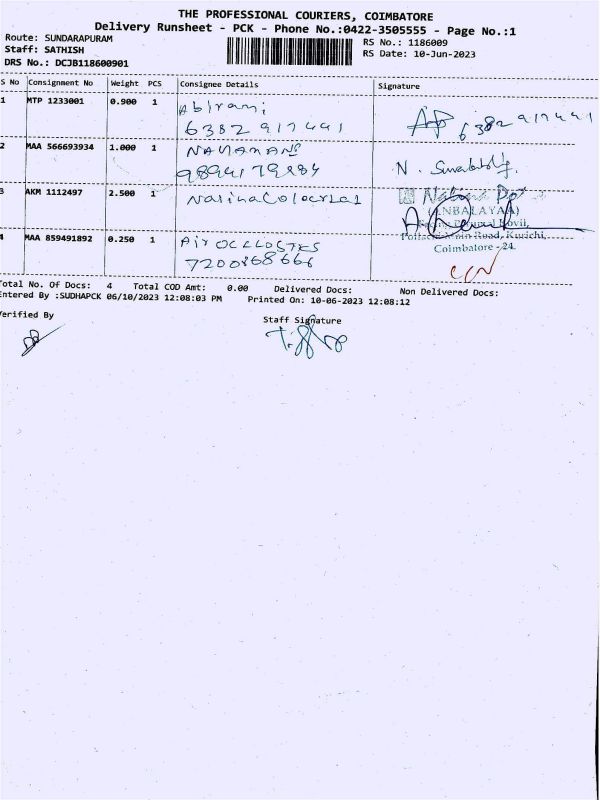 THE PROFESSIONAL COURIERS, COIMBATORE
Delivery Runsheet - PCK - Phone No.:0422-3505555 - Page No.:1
Route: SUNDARAPURAM
RS No.: 1186009
Staff: SATHISH
RS Date: 10-Jun-2023
DRS No.: DCJB118600901
S No Consignment No Weight PCS Consignee Details Signature
1 MTP 1233001 0.900 1 Abirami
6382 917441 6382 917441
2 MAA 566693934 1.000 1
N.
3 AKM 1112497 2.500 1
(ANBALAYAA)
Main Road, Kurichi,
Coimbatore - 24.
4 MAA 859491892 0.250 1
7200868666
Total No. Of Docs: 4 Total COD Amt: 0.00 Delivered Docs: Non Delivered Docs:
Entered By :SUDHAPCK 06/10/2023 12:08:03 PM Printed On: 10-06-2023 12:08:12
Verified By Staff Signature